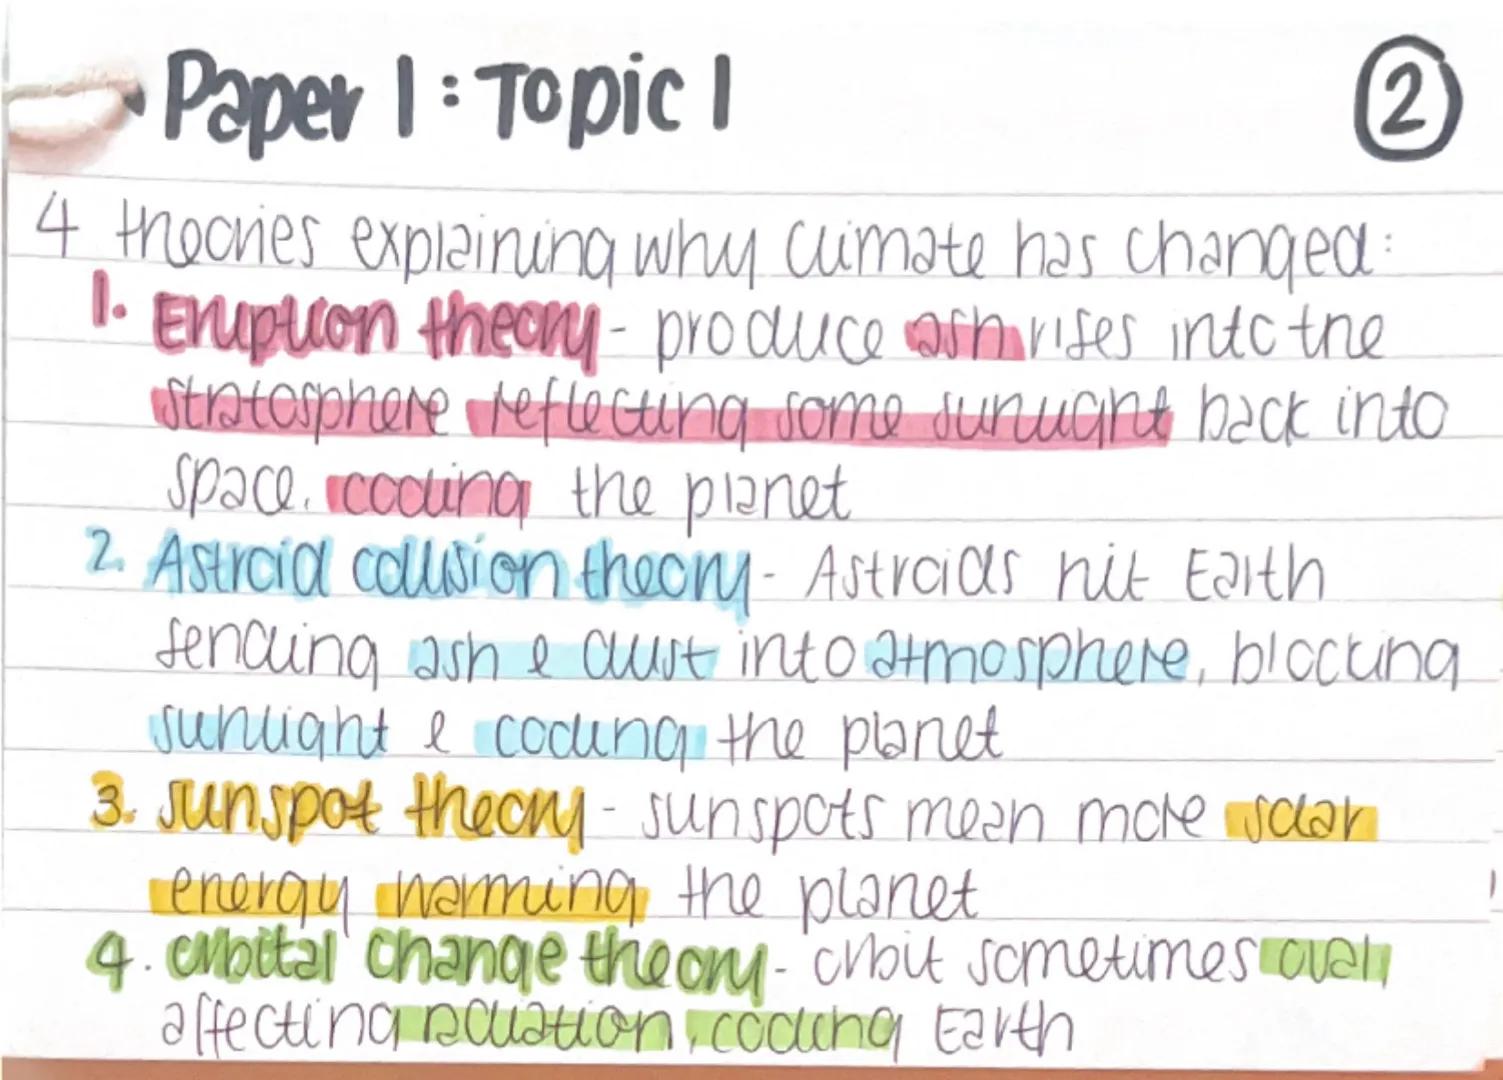 Paper 1: Topic 1
2
4 theories explaining why climate has changed:
1. Eruption theory - produce ash rises into the
stratosphere reflecting some sunlight back into
space. cooling the planet
2. Astroid collision theory - Astroids hit Earth
sending ash & dust into atmosphere, blocking
sunlight & cooling the planet
3. sunspot theory - sunspots mean more solar
energy warming the planet
4. orbital change theory - orbit sometimes oval
affecting radiation, cooling Earth